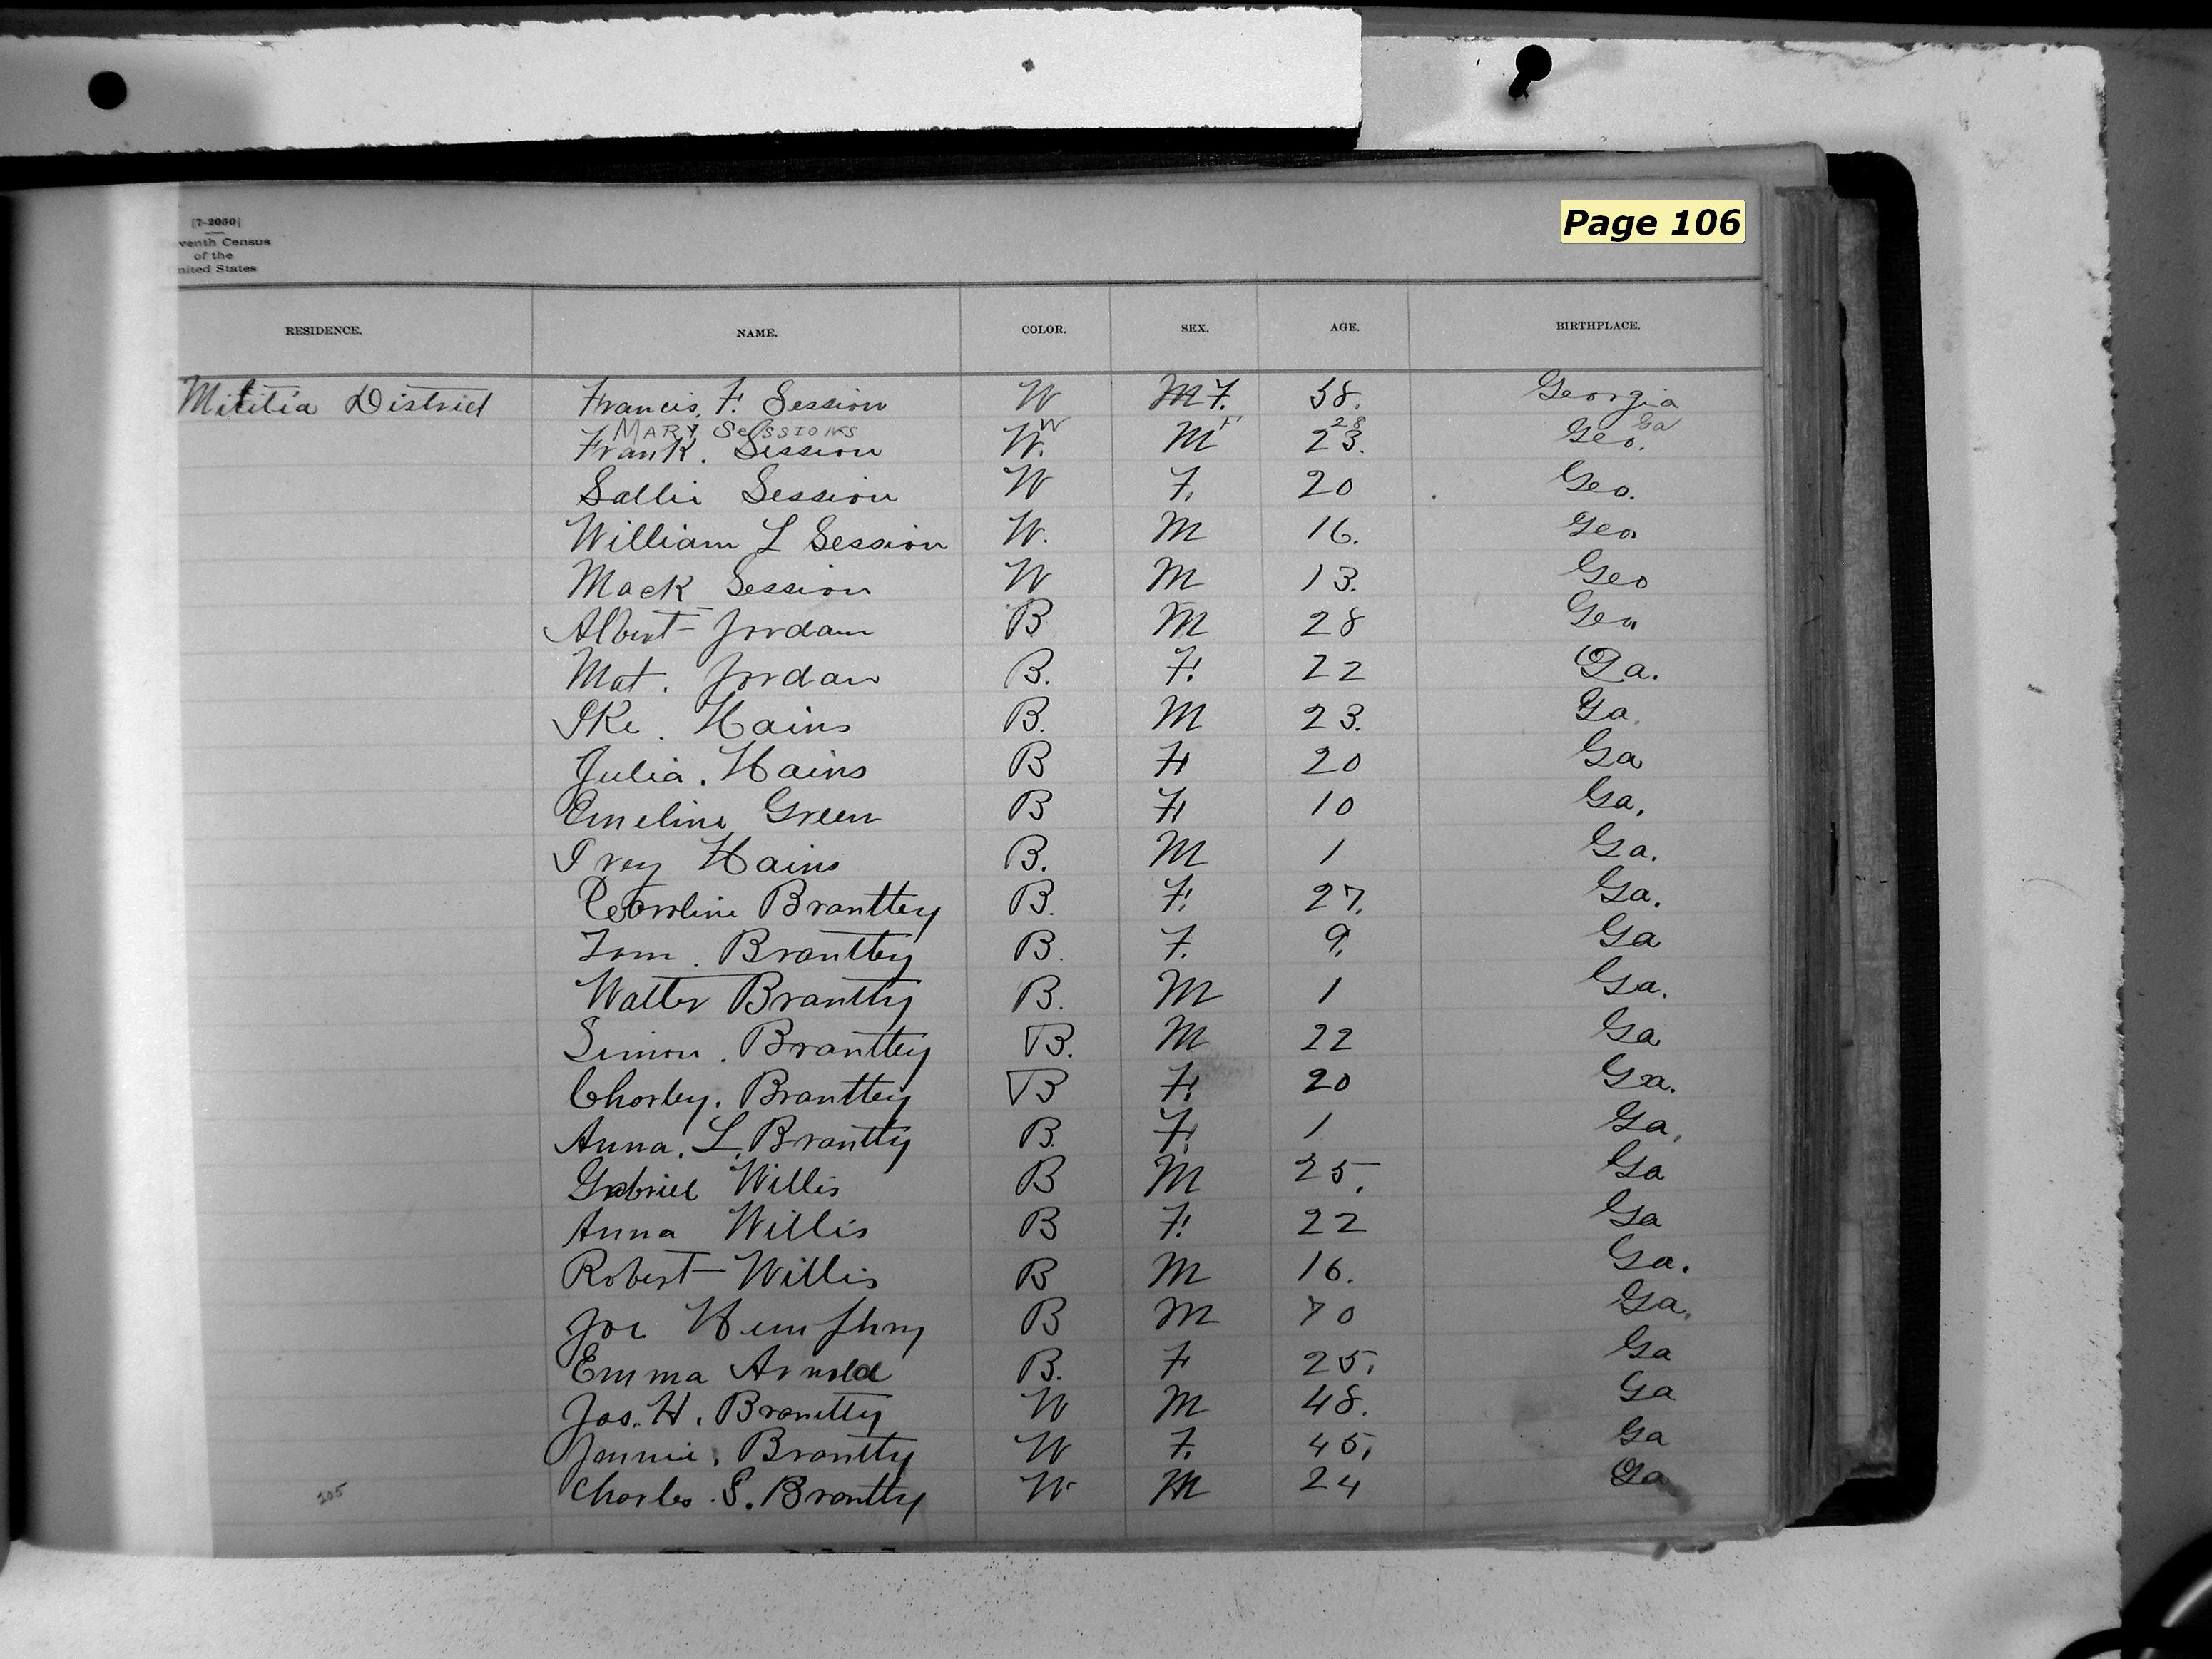 Page 106
[7-2050]
venth Census
of the
nited States
RESIDENCE. NAME. COLOR. SEX. AGE. BIRTHPLACE.
Militia District Francis, F. Session W M F. 58. Georgia
MARY SeSSIONS W F 28 Ga
Frank. Session W. M 23. Geo.
Sallie Session W F. 20 Geo.
William L Session W. M 16. Geo.
Mack Session W M 13. Geo
Albert Jordan B M 28 Geo
Mat. Jordan B. F. 22 Ga.
Ike. Hains B. M 23. Ga.
Julia. Hains B F 20 Ga
Emeline Green B F 10 Ga.
Ivey Hains B. M 1 Ga.
Caroline Brantley B. F. 27. Ga.
Tom. Brantley B. F. 9. Ga
Walter Brantly B. M 1 Ga.
Simon. Brantley B. M 22 Ga
Charley. Brantley B F. 20 Ga.
Anna. L. Brantly B. F. 1 Ga.
Gabriel Willis B M 25. Ga
Anna Willis B F. 22 Ga
Robert Willis B M 16. Ga.
Joe Humphry B M 70 Ga.
Emma Arnold B. F 25. Ga
Jos. H. Brantly W M 48. Ga
Jennie. Brantly W F. 45. Ga
205 Charles. S. Brantly W M 24 Ga